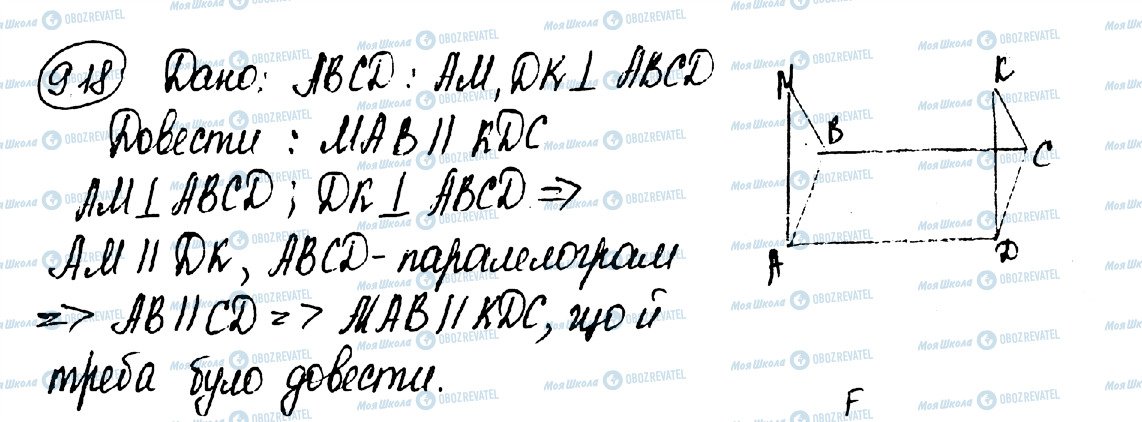 918 Дано: ABCD: AM, DK⊥ ABCD
Довести: MAB || KDC
AM⊥ABCD; DK⊥ ABCD =>
AM || DK, ABCD - паралелограм
=> AB||CD => MAB||KDC, що й
треба було довести.
M
K
B
C
A
D
F
Моя Школа OBOZREVATEL